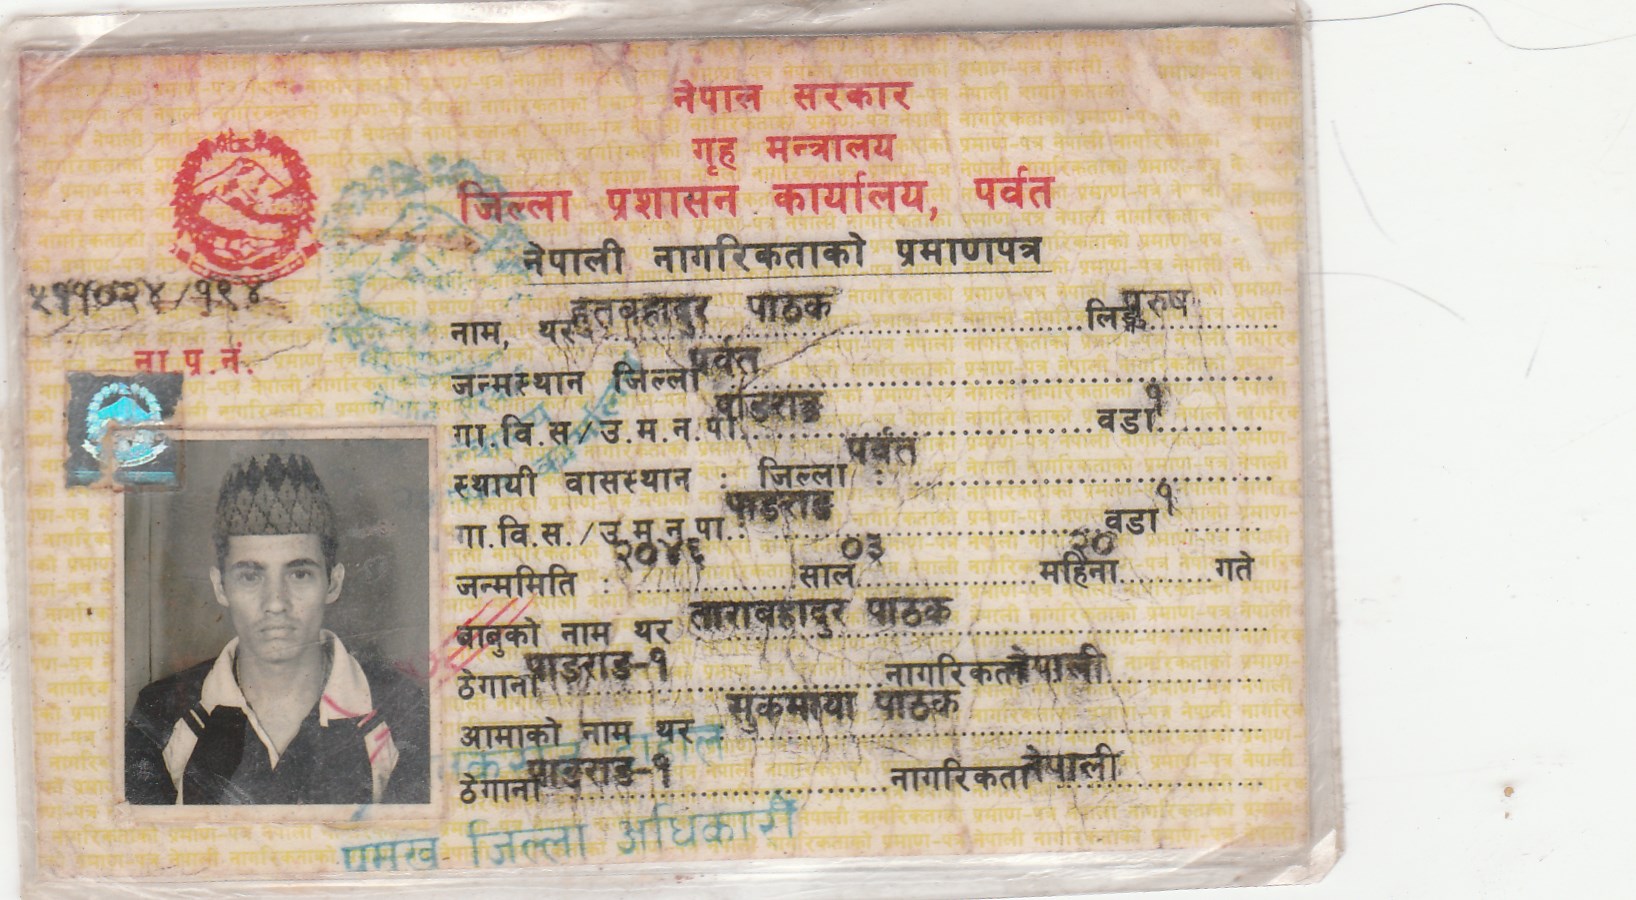 नेपाल सरकार
गृह मन्त्रालय
जिल्ला प्रशासन कार्यालय, पर्वत
नेपाली नागरिकताको प्रमाणपत्र
५११०२४/१९४
ना.प.नं.
नाम, थर हुतबहादुर पाठक लिङ्ग पुरुष
जन्मस्थान जिल्ला पर्वत
गा.वि.स/उ.म.न.पा. वडा १
स्थायी वासस्थान : जिल्ला : पर्वत
गा.वि.स./उ.म.न.पा. : वडा १
जन्ममिति : २०४६ साल ०३ महिना २० गते
बाबुको नाम थर ताराबहादुर पाठक
ठेगाना नागरिकता नेपाली
आमाको नाम थर सुकमाया पाठक
ठेगाना नागरिकता नेपाली
प्रमुख जिल्ला अधिकारी